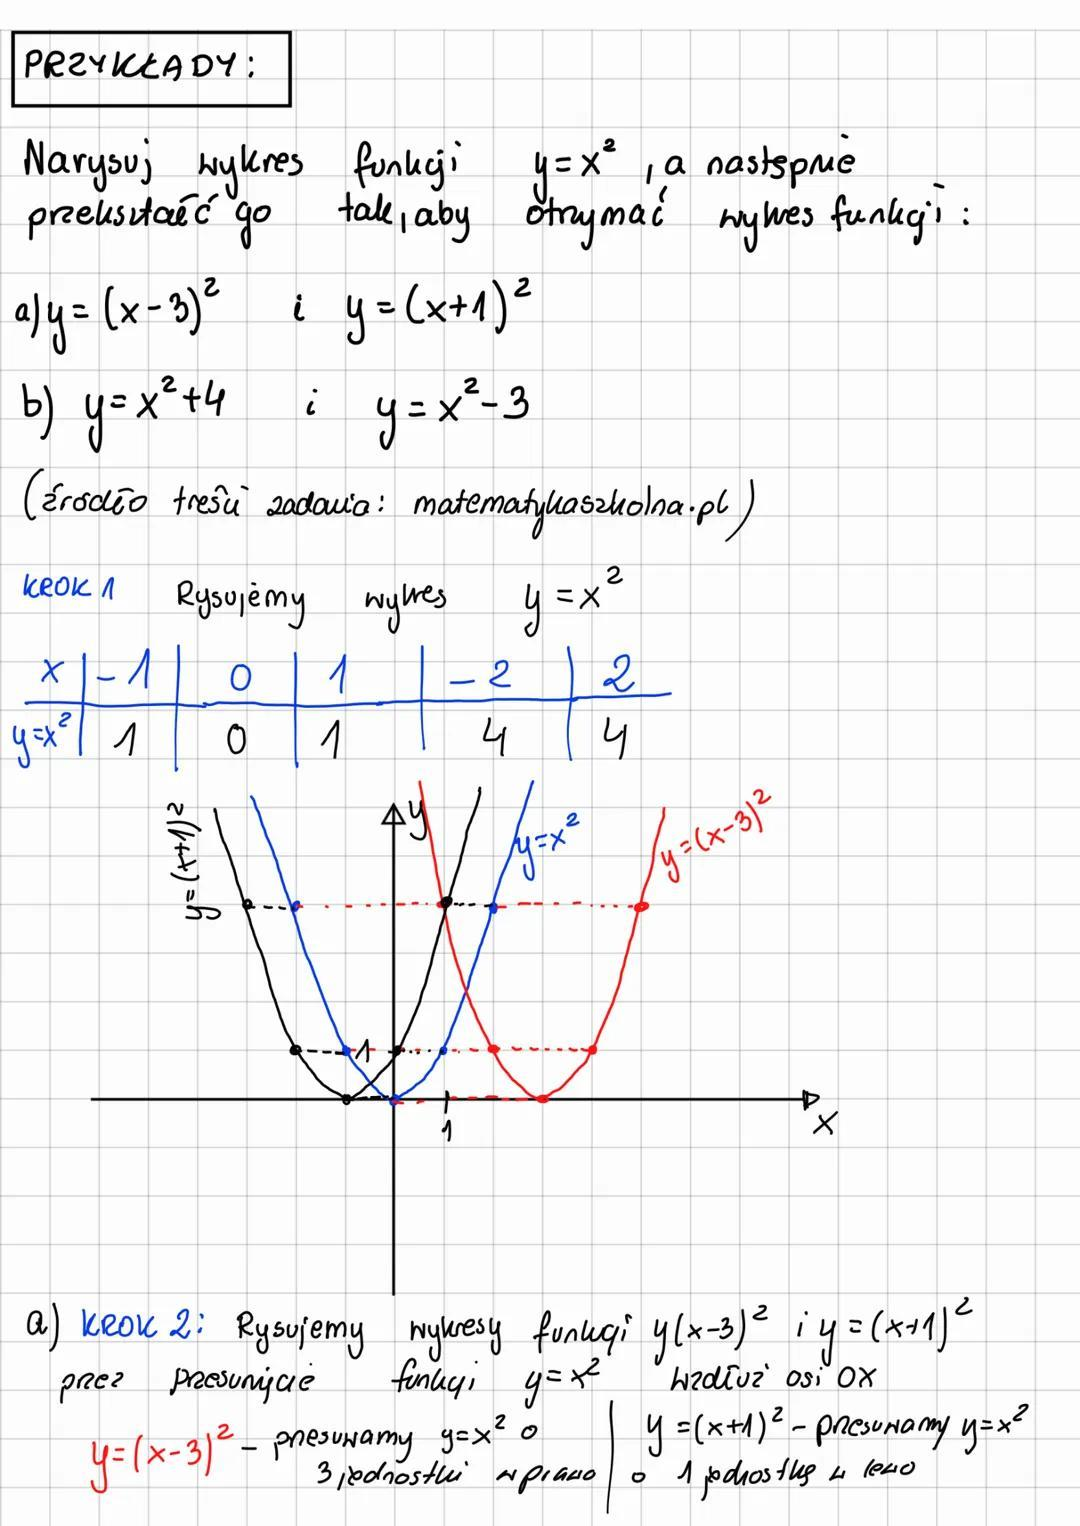 PRZYKŁADY:
Narysuj wykres funkcji y=x², a następnie
przekształć go tak, aby otrzymać wykres funkcji:
a) y=(x-3)² i y=(x+1)²
b) y=x²+4 i y=x²-3
(źródło treści zadania: matematykaszkolna.pl)
KROK 1 Rysujemy wykres y=x²
x | -1 | 0 | 1 | -2 | 2
y=x² | 1 | 0 | 1 | 4 | 4
y=(x+1)²
y
y=x²
y=(x-3)²
1
1
x
a) KROK 2: Rysujemy wykresy funkcji y(x-3)² i y=(x+1)²
przez przesunięcie funkcji y=x² wzdłuż osi OX
y=(x-3)² - przesuwamy y=x² o | y=(x+1)² - przesuwamy y=x²
3 jednostki w prawo | o 1 jednostkę w lewo